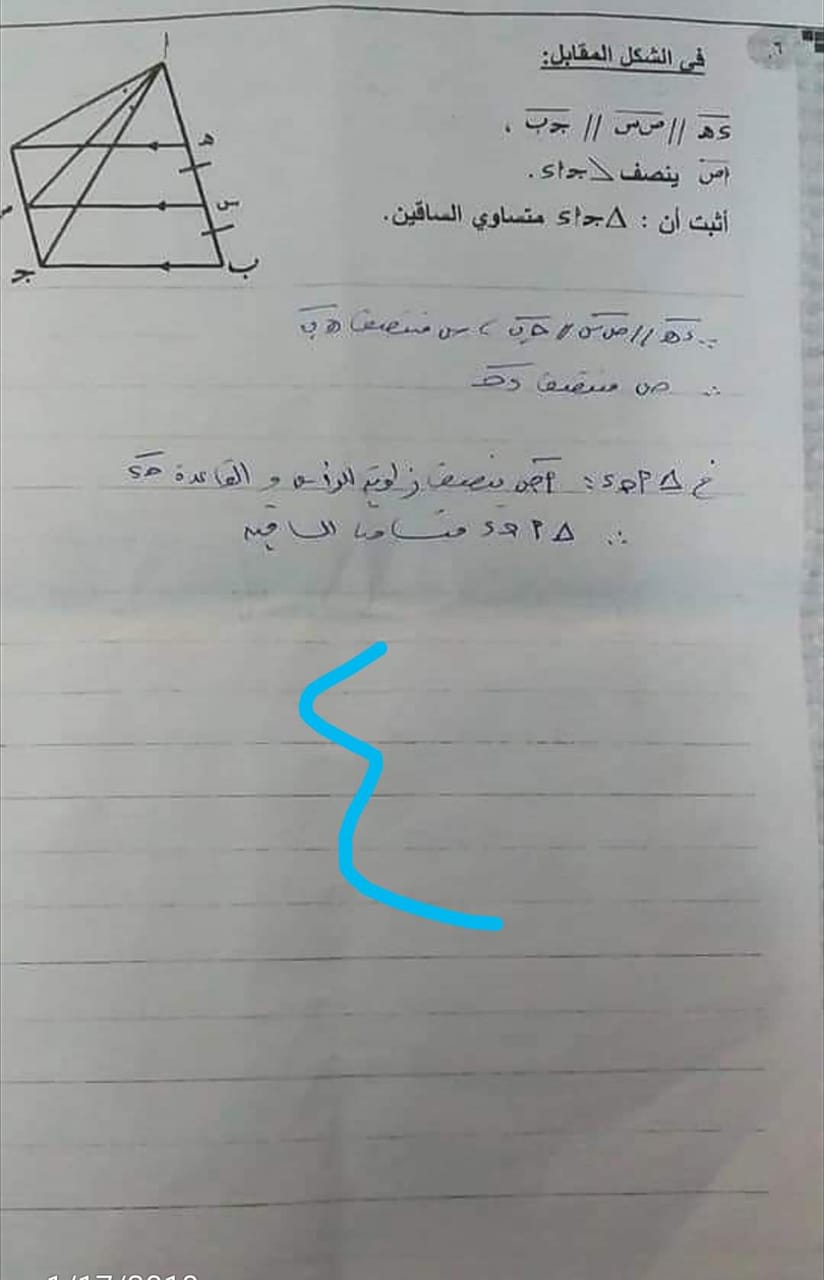 ٦.
في الشكل المقابل:
د هـ // ص س // جـ ب ،
أص ينصف ∠ جـ أ د .
أثبت أن : Δ جـ أ د متساوي الساقين.
أ
هـ
س
ب
جـ
∵ د هـ // ص س // جـ ب ، س منتصف هـ ب
∴ ص منتصف د جـ
في Δ أ جـ د : أ ص ينصف زاوية الرأس و القاعدة جـ د
∴ Δ أ جـ د متساوى الساقين